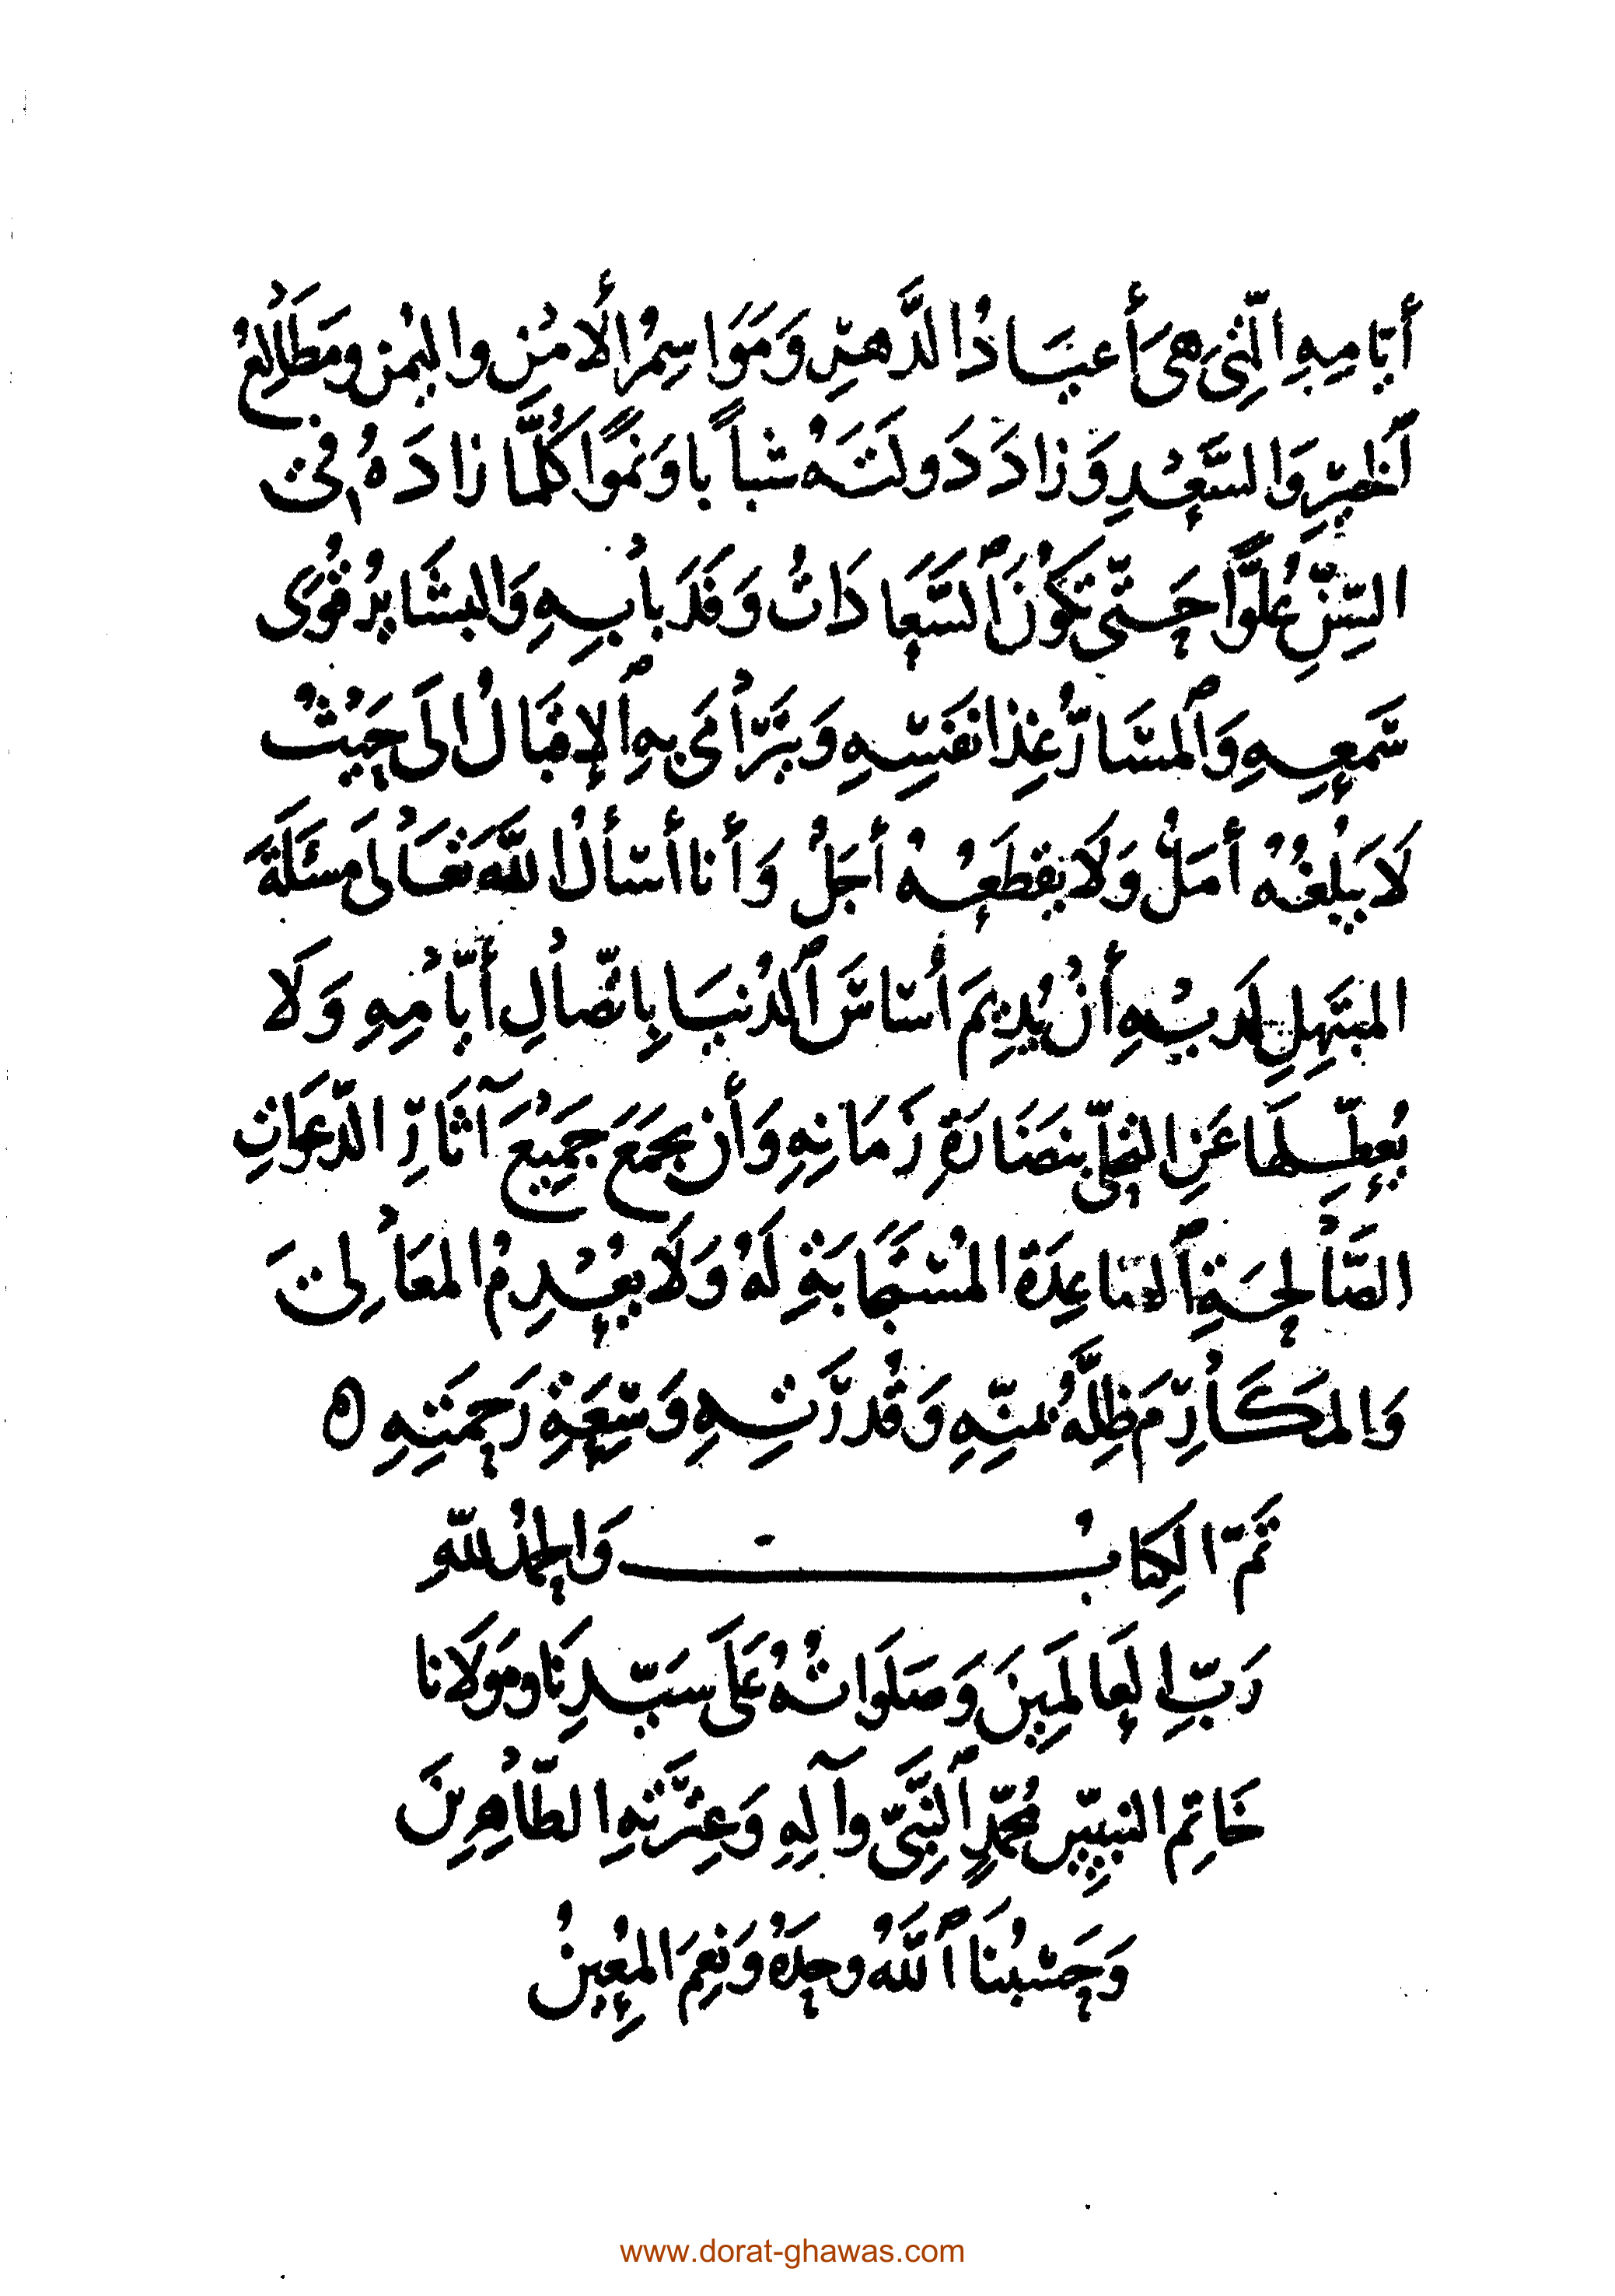 أيّامِهِ الّتِي هِيَ أعيَادُ الدَّهرِ وَمَوَاسِمُ الأمْنِ واليُمنِ ومَطَالِعُ
الخيرِ وَالسَّعْدِ وَزادَ دَولَتَهُ شباباً ونموًّا كُلَّما زادَهُ في
السِّنِّ عُلُوًّا حَتّى تكُونَ السَّعَادَاتُ وَفدَ بابِهِ وَالبشَايرُ قُوى
سَمعِهِ وَالمسَارُّ غِذا نفَسِهِ وَيَتَرَامَى بِهِ الإقبَالُ الَى حَيْثُ
لَا يَبْلُغُهُ أمَلٌ وَلَا يقطَعُهُ أجَلٌ وَأنا أسألُ اللَّهَ تَعَالَى مَسئَلَةَ
المبتَهِلِ لَدَيْهِ أنْ يُدِيمَ أساسَ الدُنيَا بِاتّصالِ أيّامِهِ وَلَا
يُعطِّلَهَا عَنِ التَحلِّي بنضَارَةِ زَمَانِهِ وَأن يجمَعَ جَمِيْعَ آثَارِ الدّعَواتِ
الصَّالِحَةِ الصاعِدَة المُسْتَجَابَةِ لَهُ وَلَا يُعْدِمُ المعَالِيَ
وَالمَكَارِمَ ظِلَّهُ بمَنِّهِ وَقُدرَتِهِ وَسِعَةِ رَحمَتِهِ ه
تَمّ الكِتابُ وَالحمْدُ للّهِ
رَبِّ العَالَمِينَ وَصَلَوَاتُهُ عَلَى سَيّدِنَا ومَولَانا
خَاتِم النبيّينِ مُحَمّدٍ النَّبِيّ وآلِهِ وَعِترَتِهِ الطّاهِرِينَ
وَحَسْبُنَا اللَّهُ وحدَهُ وَنِعمَ المُعِينُ
www.dorat-ghawas.com